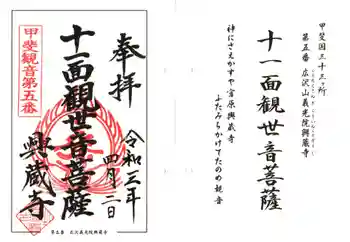 奉拝
甲斐観音第五番
十一面観世音菩薩
令和三年
四月二日
興蔵寺
第五番 広沢山義光院興蔵寺
甲斐国三十三ヶ所
第五番 広沢山義光院興蔵寺
十一面観世音菩薩
神にさえかすや宮原興蔵寺
ふたみちかけてたのめ観音